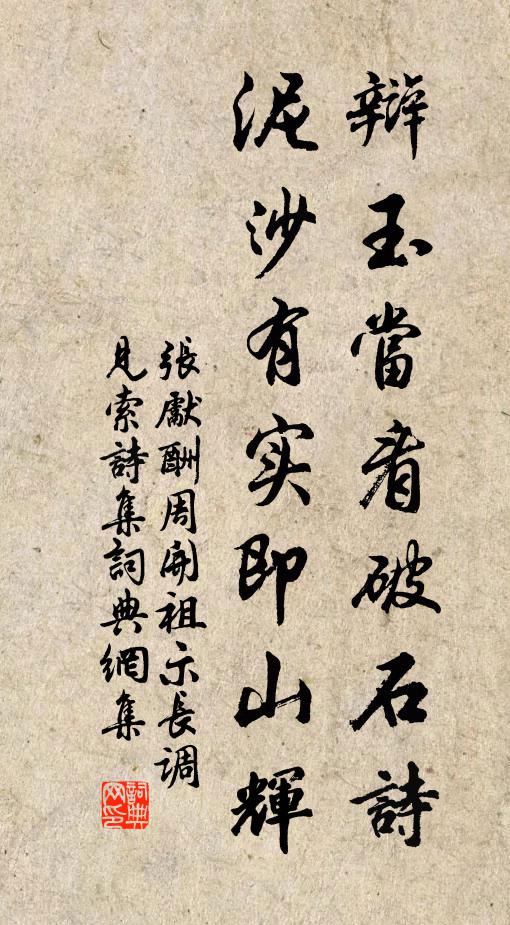 辯玉當看破石詩
泥沙有实即山輝
張獻酬周開祖示長調
見索詩集詞典網集
詞典
网印